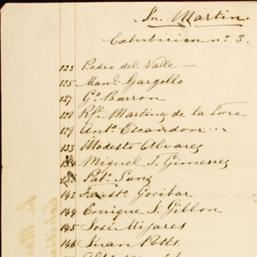 Sn. Martin.
Exhibicion nº 3.
123 Pedro del Valle
125 Manl. Gargollo
127 Gº Barron
128 Rfl. Martinez de la Torre
129 Antº Escandon
133 Modesto Alvarez
134 Miguel S. Gimenez
Pat.
143 Goribar
144 Enrique S. Gibbon
145 José Mijares
146 Juan